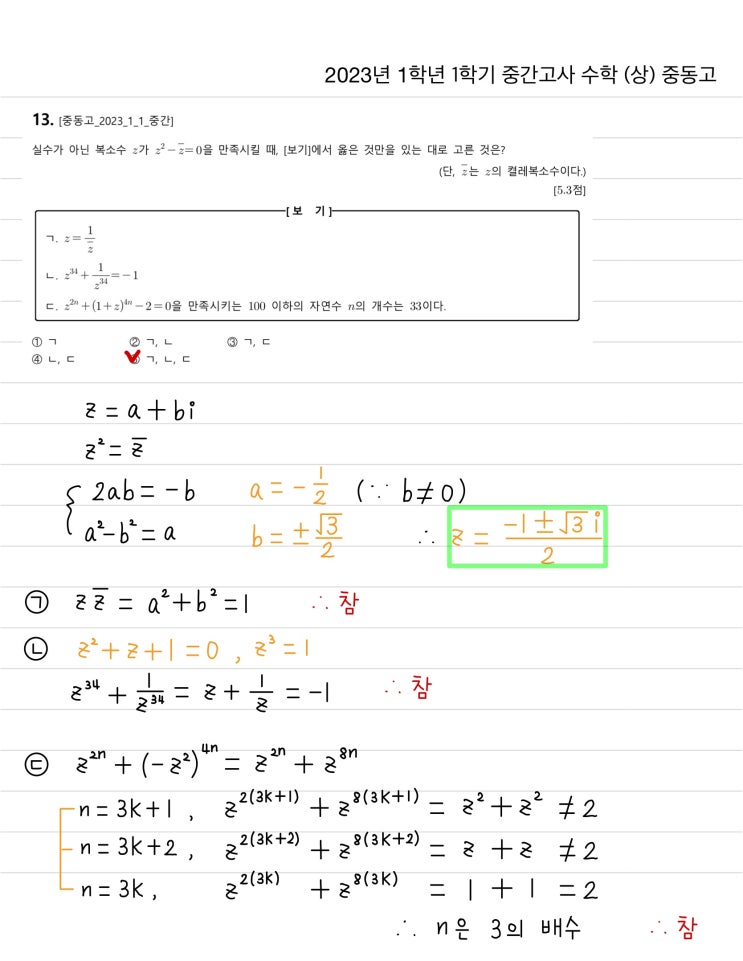 2023년 1학년 1학기 중간고사 수학 (상) 중동고
13. [중동고_2023_1_1_중간]
실수가 아닌 복소수 z가 z² − z̅ = 0을 만족시킬 때, [보기]에서 옳은 것만을 있는 대로 고른 것은?
(단, z̅는 z의 켤레복소수이다.)
[5.3점]
[보 기]
ㄱ. z = 1/z̅
ㄴ. z³⁴ + 1/z³⁴ = −1
ㄷ. z²ⁿ + (1+z)⁴ⁿ − 2 = 0을 만족시키는 100 이하의 자연수 n의 개수는 33이다.
① ㄱ ② ㄱ, ㄴ ③ ㄱ, ㄷ
④ ㄴ, ㄷ ⑤ ㄱ, ㄴ, ㄷ
z = a + bi
z² = z̅
2ab = −b a = −1/2 (∵ b ≠ 0)
a² − b² = a b = ±√3/2 ∴ z = (−1 ± √3 i)/2
㉠ z z̅ = a² + b² = 1 ∴ 참
㉡ z² + z + 1 = 0 , z³ = 1
z³⁴ + 1/z³⁴ = z + 1/z = −1 ∴ 참
㉢ z²ⁿ + (−z²)⁴ⁿ = z²ⁿ + z⁸ⁿ
n = 3k+1 , z^2(3k+1) + z^8(3k+1) = z² + z² ≠ 2
n = 3k+2 , z^2(3k+2) + z^8(3k+2) = z + z ≠ 2
n = 3k , z^2(3k) + z^8(3k) = 1 + 1 = 2
∴ n은 3의 배수 ∴ 참